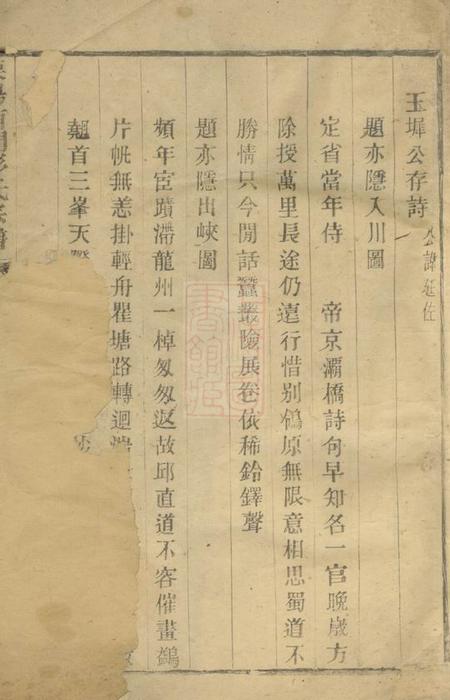 玉墀公存詩 公諱廷佐
題亦隱入川圖
定省當年侍 帝京灞橋詩句早知名一官晚歲方
除授萬里長途仍遠行惜别鴒原無限意相思蜀道不
勝情只今閒話蠶叢險展卷依稀鈴鐸聲
題亦隱出峽圖
頻年宦蹟滯龍州一棹匆匆返故邱直道不容催畫鷁
片帆無恙掛輕舟瞿塘路轉迴
翹首三峯天